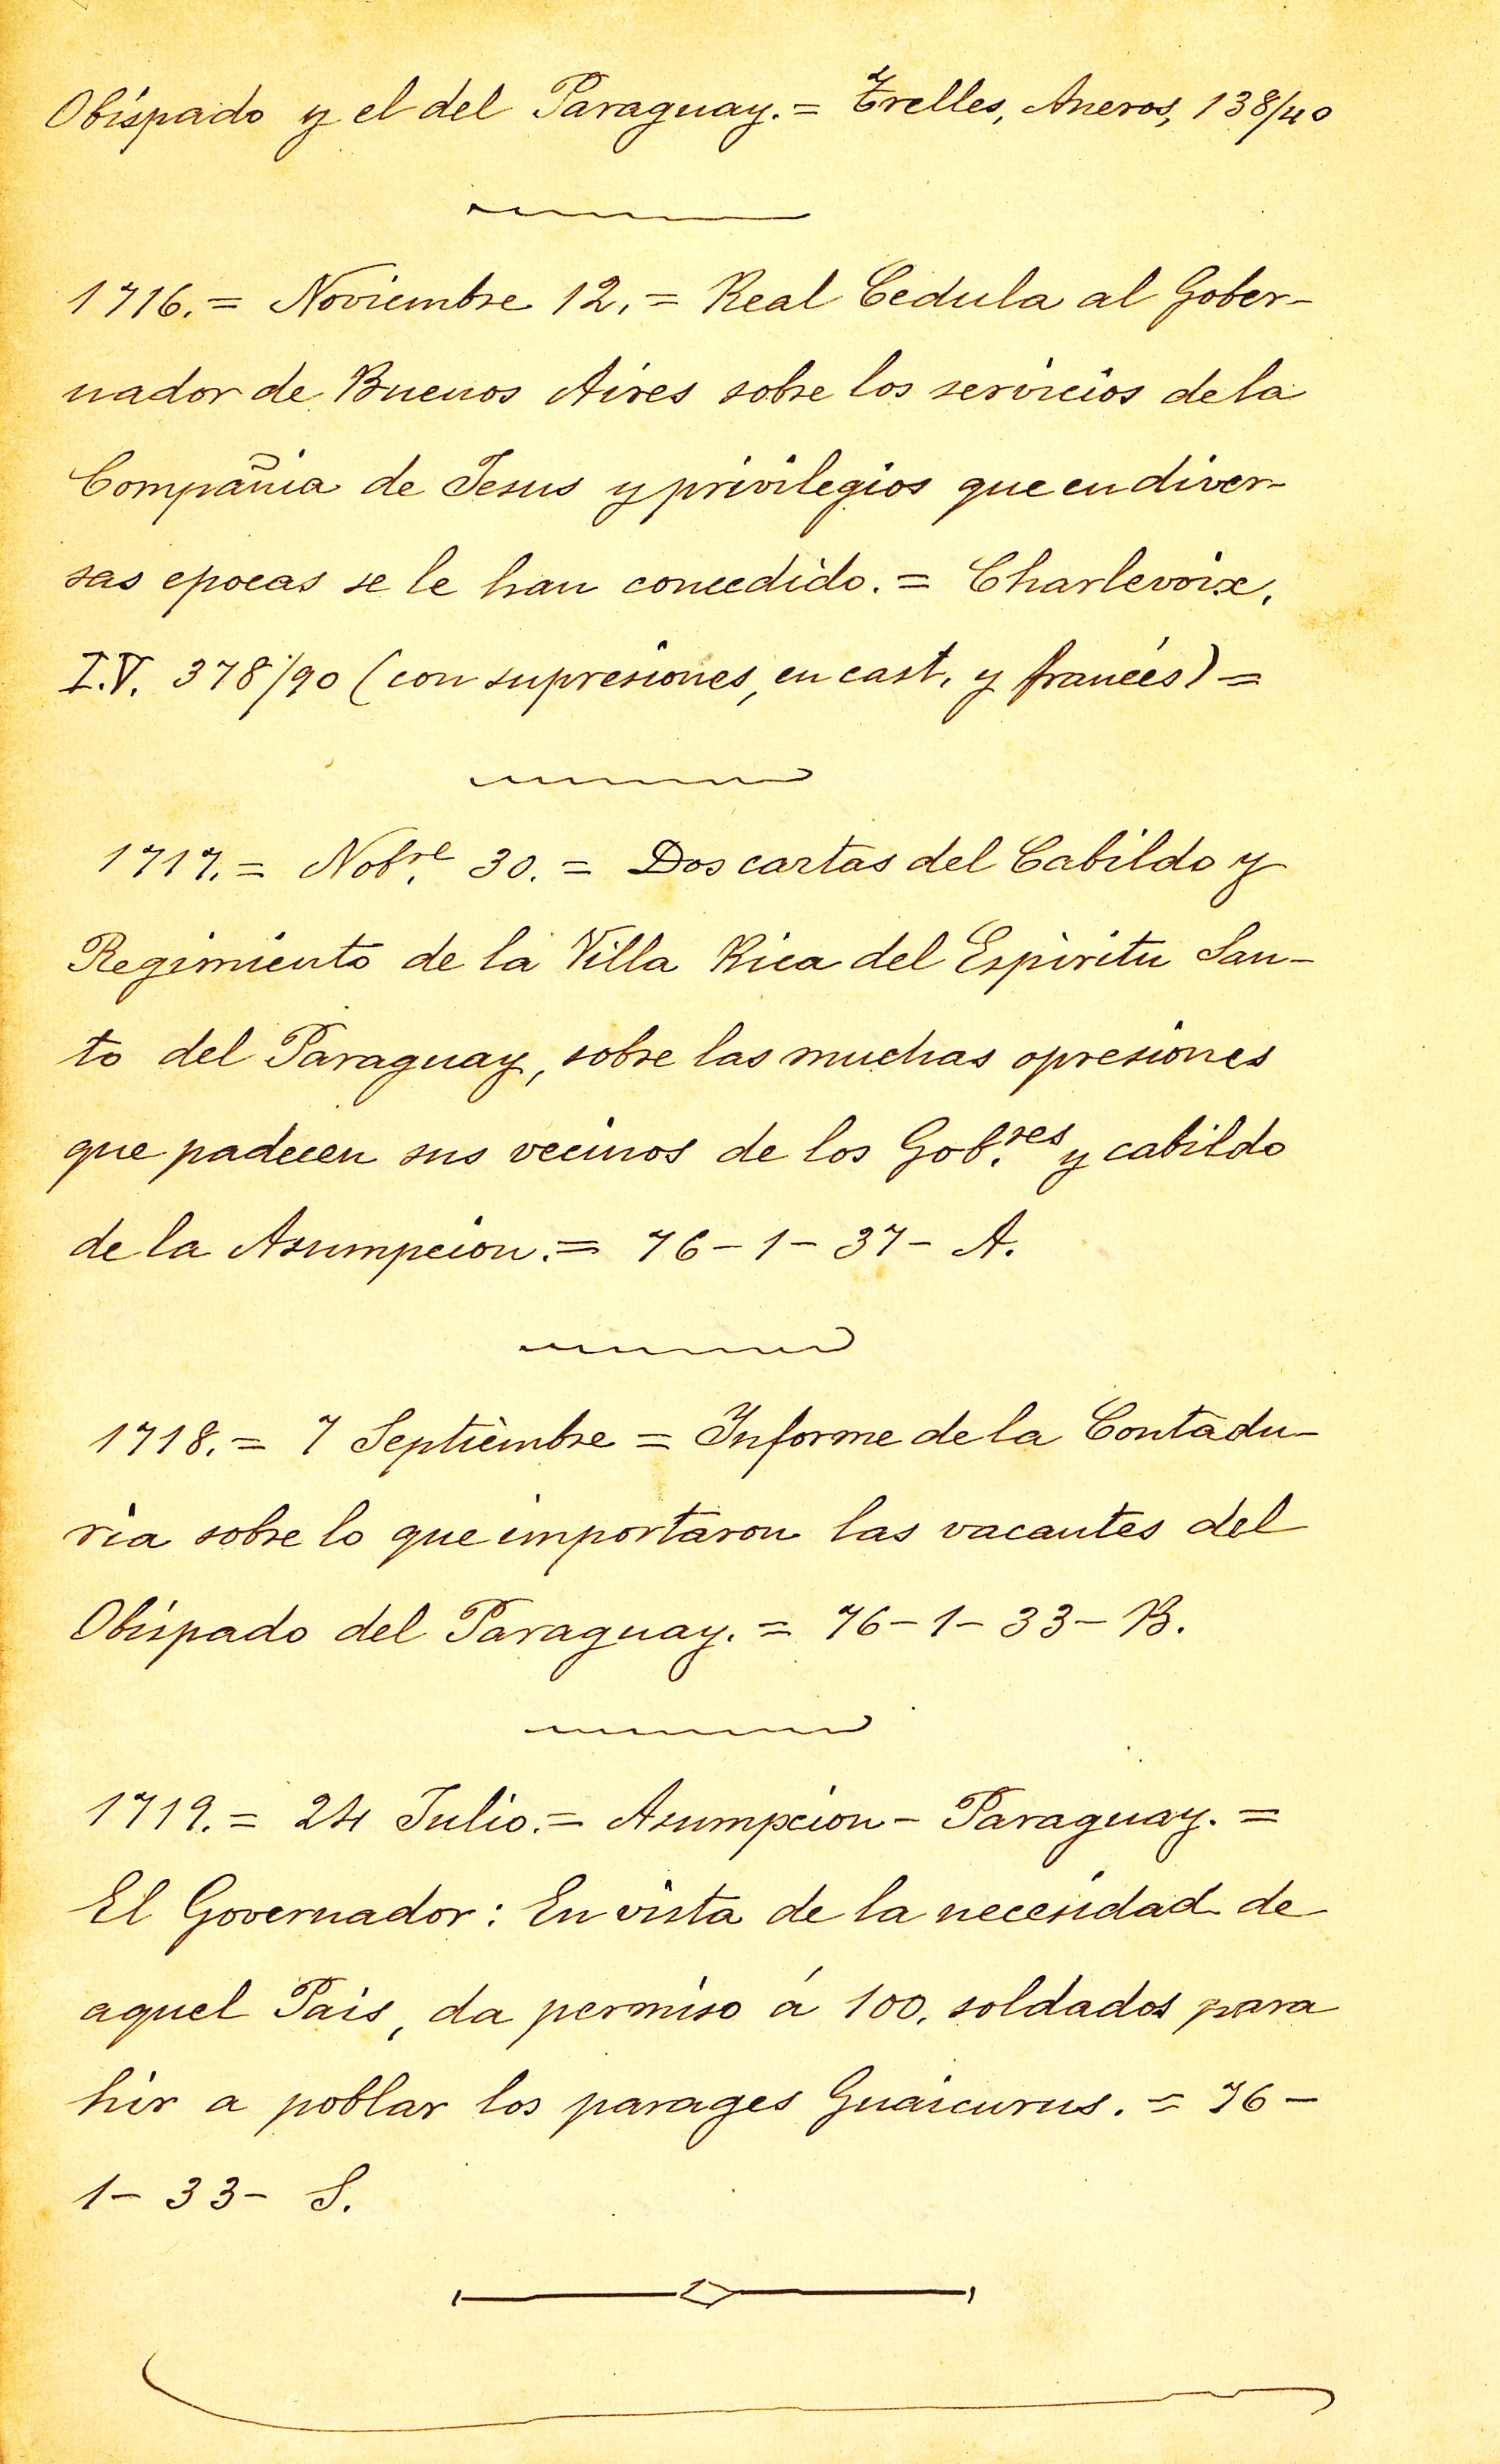 Obispado y el del Paraguay. = Trelles, Aneros, 138/40
1716. = Noviembre 12. = Real Cedula al Gober-
nador de Buenos Aires sobre los servicios de la
Compañia de Jesus y privilegios que en diver-
sas epocas se le han concedido. = Charlevoix,
I.V. 378/90 (con supresiones, en cast. y francés) =
1717. = Nobre. 30. = Dos cartas del Cabildo y
Regimiento de la Villa Rica del Espiritu San-
to del Paraguay, sobre las muchas opresiones
que padecen sus vecinos de los Gob.res y cabildo
de la Asumpcion. = 76-1-37- A.
1718. = 7 Septiembre = Informe de la Contadu-
ria sobre lo que importaron las vacantes del
Obispado del Paraguay. = 76-1-33- B.
1719. = 24 Julio. = Asumpcion - Paraguay. =
El Governador: En vista de la necesidad de
aquel Pais, da permiso á 100. soldados para
hir a poblar los parages Guaicurus. = 76-
1-33- S.